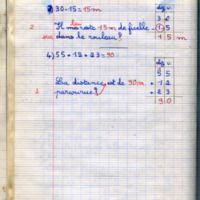 2) 30-15=15m
d u
3 0
lui
2 Il me reste 15m de ficelle
- 1 5
ou dans le rouleau?
1 5 m
4) 55+12+23=90
d u
5 5
La distance est de 90m.
+ 1 2
1 parcourue?
+ 2 3
9 0